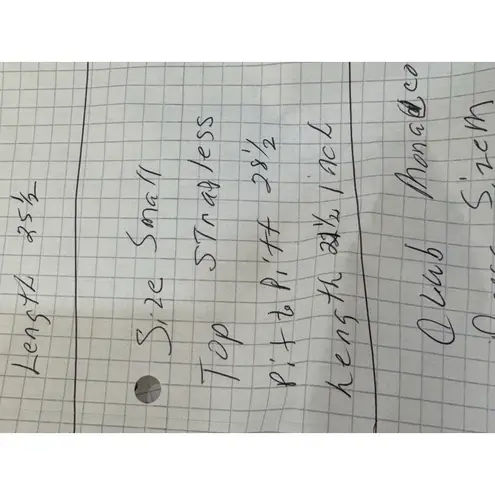 Length 25½
Size Small
Top STrapless
Pitt to Pitt 28½
Length ½ inch
Club Monaco
Size m